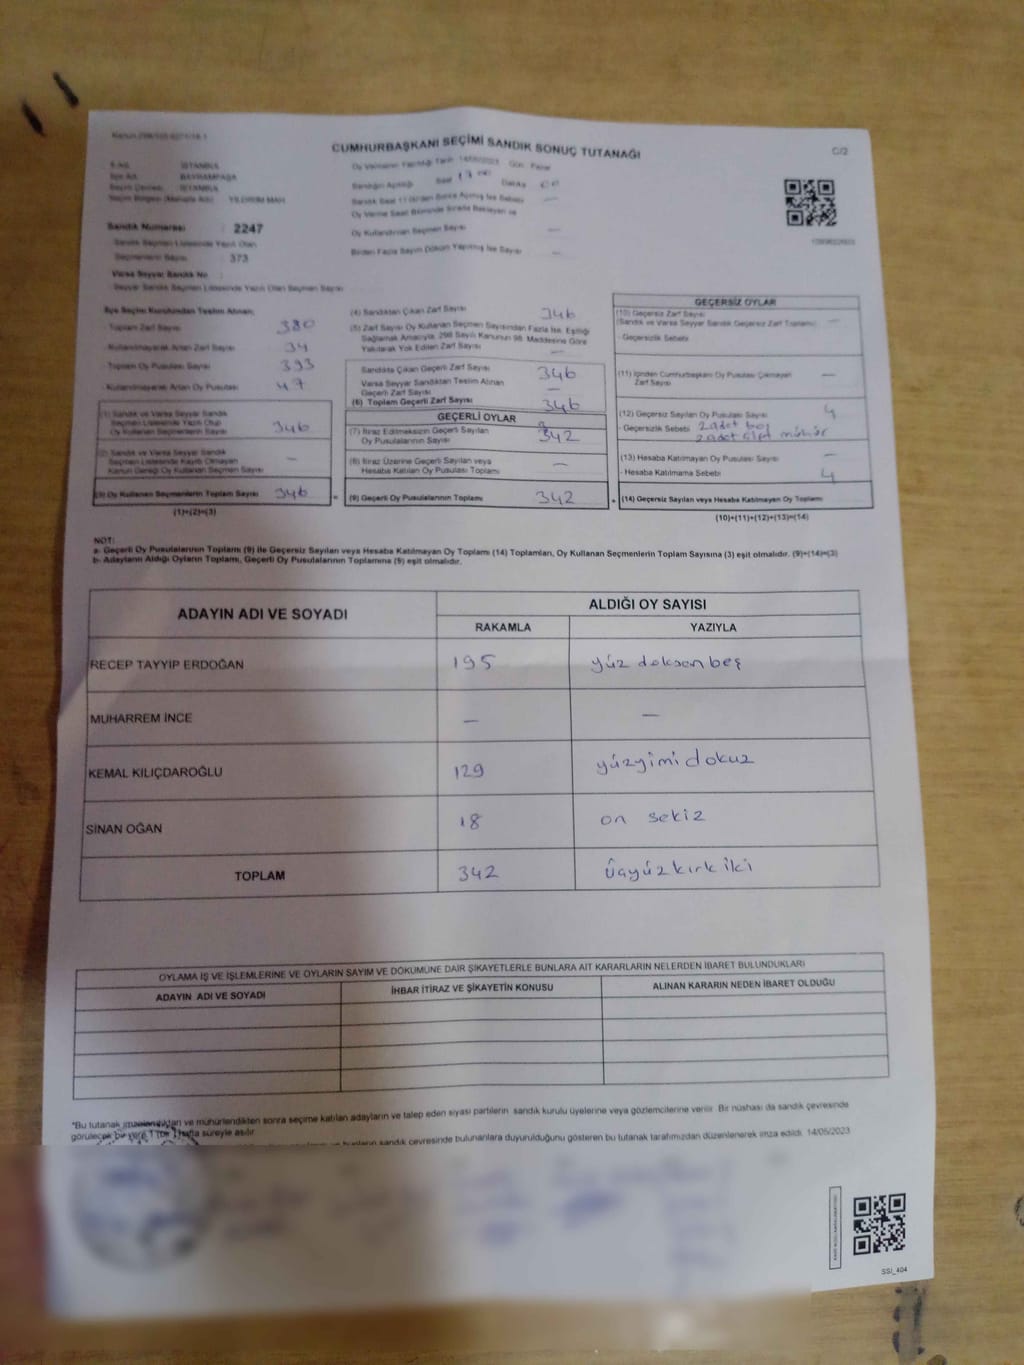 CUMHURBAŞKANI SEÇİMİ SANDIK SONUÇ TUTANAĞI
C/2
İSTANBUL
BAYRAMPAŞA
İSTANBUL
YILDIRIM MAH.
Sandık Numarası : 2247
Sandık Seçmen Listesinde Yazılı Olan
Seçmenlerin Sayısı : 373
Varsa Seyyar Sandık No :
Seyyar Sandık Seçmen Listesinde Yazılı Olan Seçmen Sayısı
Oy Verme Saati Bitiminde Sırada Bekleyen ve
Oy Kullandırılan Seçmen Sayısı —
Birden Fazla Sayım Döküm Yapılmış İse Sayısı —
İlçe Seçim Kurulundan Teslim Alınan;
Toplam Zarf Sayısı 380
- Kullanılmayarak Artan Zarf Sayısı 34
Toplam Oy Pusulası Sayısı 393
- Kullanılmayarak Artan Oy Pusulası 47
(1) Sandık ve Varsa Seyyar Sandık
Seçmen Listesinde Yazılı Olup
Oy Kullanan Seçmenlerin Sayısı 346
(2) Sandık ve Varsa Seyyar Sandık
Seçmen Listesinde Kayıtlı Olmayan
Kanun Gereği Oy Kullanan Seçmen Sayısı —
(3) Oy Kullanan Seçmenlerin Toplam Sayısı 346
(1)+(2)=(3)
(4) Sandıktan Çıkan Zarf Sayısı 346
(5) Zarf Sayısı Oy Kullanan Seçmen Sayısından Fazla İse, Eşitliği
Sağlamak Amacıyla, 298 Sayılı Kanunun 98. Maddesine Göre
Yakılarak Yok Edilen Zarf Sayısı —
Sandıkta Çıkan Geçerli Zarf Sayısı 346
Varsa Seyyar Sandıktan Teslim Alınan
Geçerli Zarf Sayısı —
(6) Toplam Geçerli Zarf Sayısı 346
GEÇERLİ OYLAR
(7) İtiraz Edilmeksizin Geçerli Sayılan
Oy Pusulalarının Sayısı 342
(8) İtiraz Üzerine Geçerli Sayılan veya
Hesaba Katılan Oy Pusulası Toplamı —
= (9) Geçerli Oy Pusulalarının Toplamı 342
GEÇERSİZ OYLAR
(10) Geçersiz Zarf Sayısı
(Sandık ve Varsa Seyyar Sandık Geçersiz Zarf Toplamı) —
- Geçersizlik Sebebi
(11) İçinden Cumhurbaşkanı Oy Pusulası Çıkmayan
Zarf Sayısı —
(12) Geçersiz Sayılan Oy Pusulası Sayısı 4
- Geçersizlik Sebebi 2 adet boş
2 adet mühür
(13) Hesaba Katılmayan Oy Pusulası Sayısı —
- Hesaba Katılmama Sebebi 4
+ (14) Geçersiz Sayılan veya Hesaba Katılmayan Oy Toplamı
(10)+(11)+(12)+(13)=(14)
NOT:
a- Geçerli Oy Pusulalarının Toplamı (9) ile Geçersiz Sayılan veya Hesaba Katılmayan Oy Toplamı (14) Toplamları, Oy Kullanan Seçmenlerin Toplam Sayısına (3) eşit olmalıdır. (9)+(14)=(3)
b- Adayların Aldığı Oyların Toplamı, Geçerli Oy Pusulalarının Toplamına (9) eşit olmalıdır.
ADAYIN ADI VE SOYADI
ALDIĞI OY SAYISI
RAKAMLA YAZIYLA
RECEP TAYYİP ERDOĞAN 195 yüz doksan beş
MUHARREM İNCE — —
KEMAL KILIÇDAROĞLU 129 yüzyimi dokuz
SİNAN OĞAN 18 on sekiz
TOPLAM 342 üçyüz kırk iki
OYLAMA İŞ VE İŞLEMLERİNE VE OYLARIN SAYIM VE DÖKÜMÜNE DAİR ŞİKAYETLERLE BUNLARA AİT KARARLARIN NELERDEN İBARET BULUNDUKLARI
ADAYIN ADI VE SOYADI İHBAR İTİRAZ VE ŞİKAYETİN KONUSU ALINAN KARARIN NEDEN İBARET OLDUĞU
*Bu tutanak imzalandıktan ve mühürlendikten sonra seçime katılan adayların ve talep eden siyasi partilerin sandık kurulu üyelerine veya gözlemcilerine verilir. Bir nüshası da sandık çevresinde
görülecek bir yere 1 (bir) hafta süreyle asılır.
sandık çevresinde bulunanlara duyurulduğunu gösteren bu tutanak tarafımızdan düzenlenerek imza edildi. 14/05/2023
SSI_404